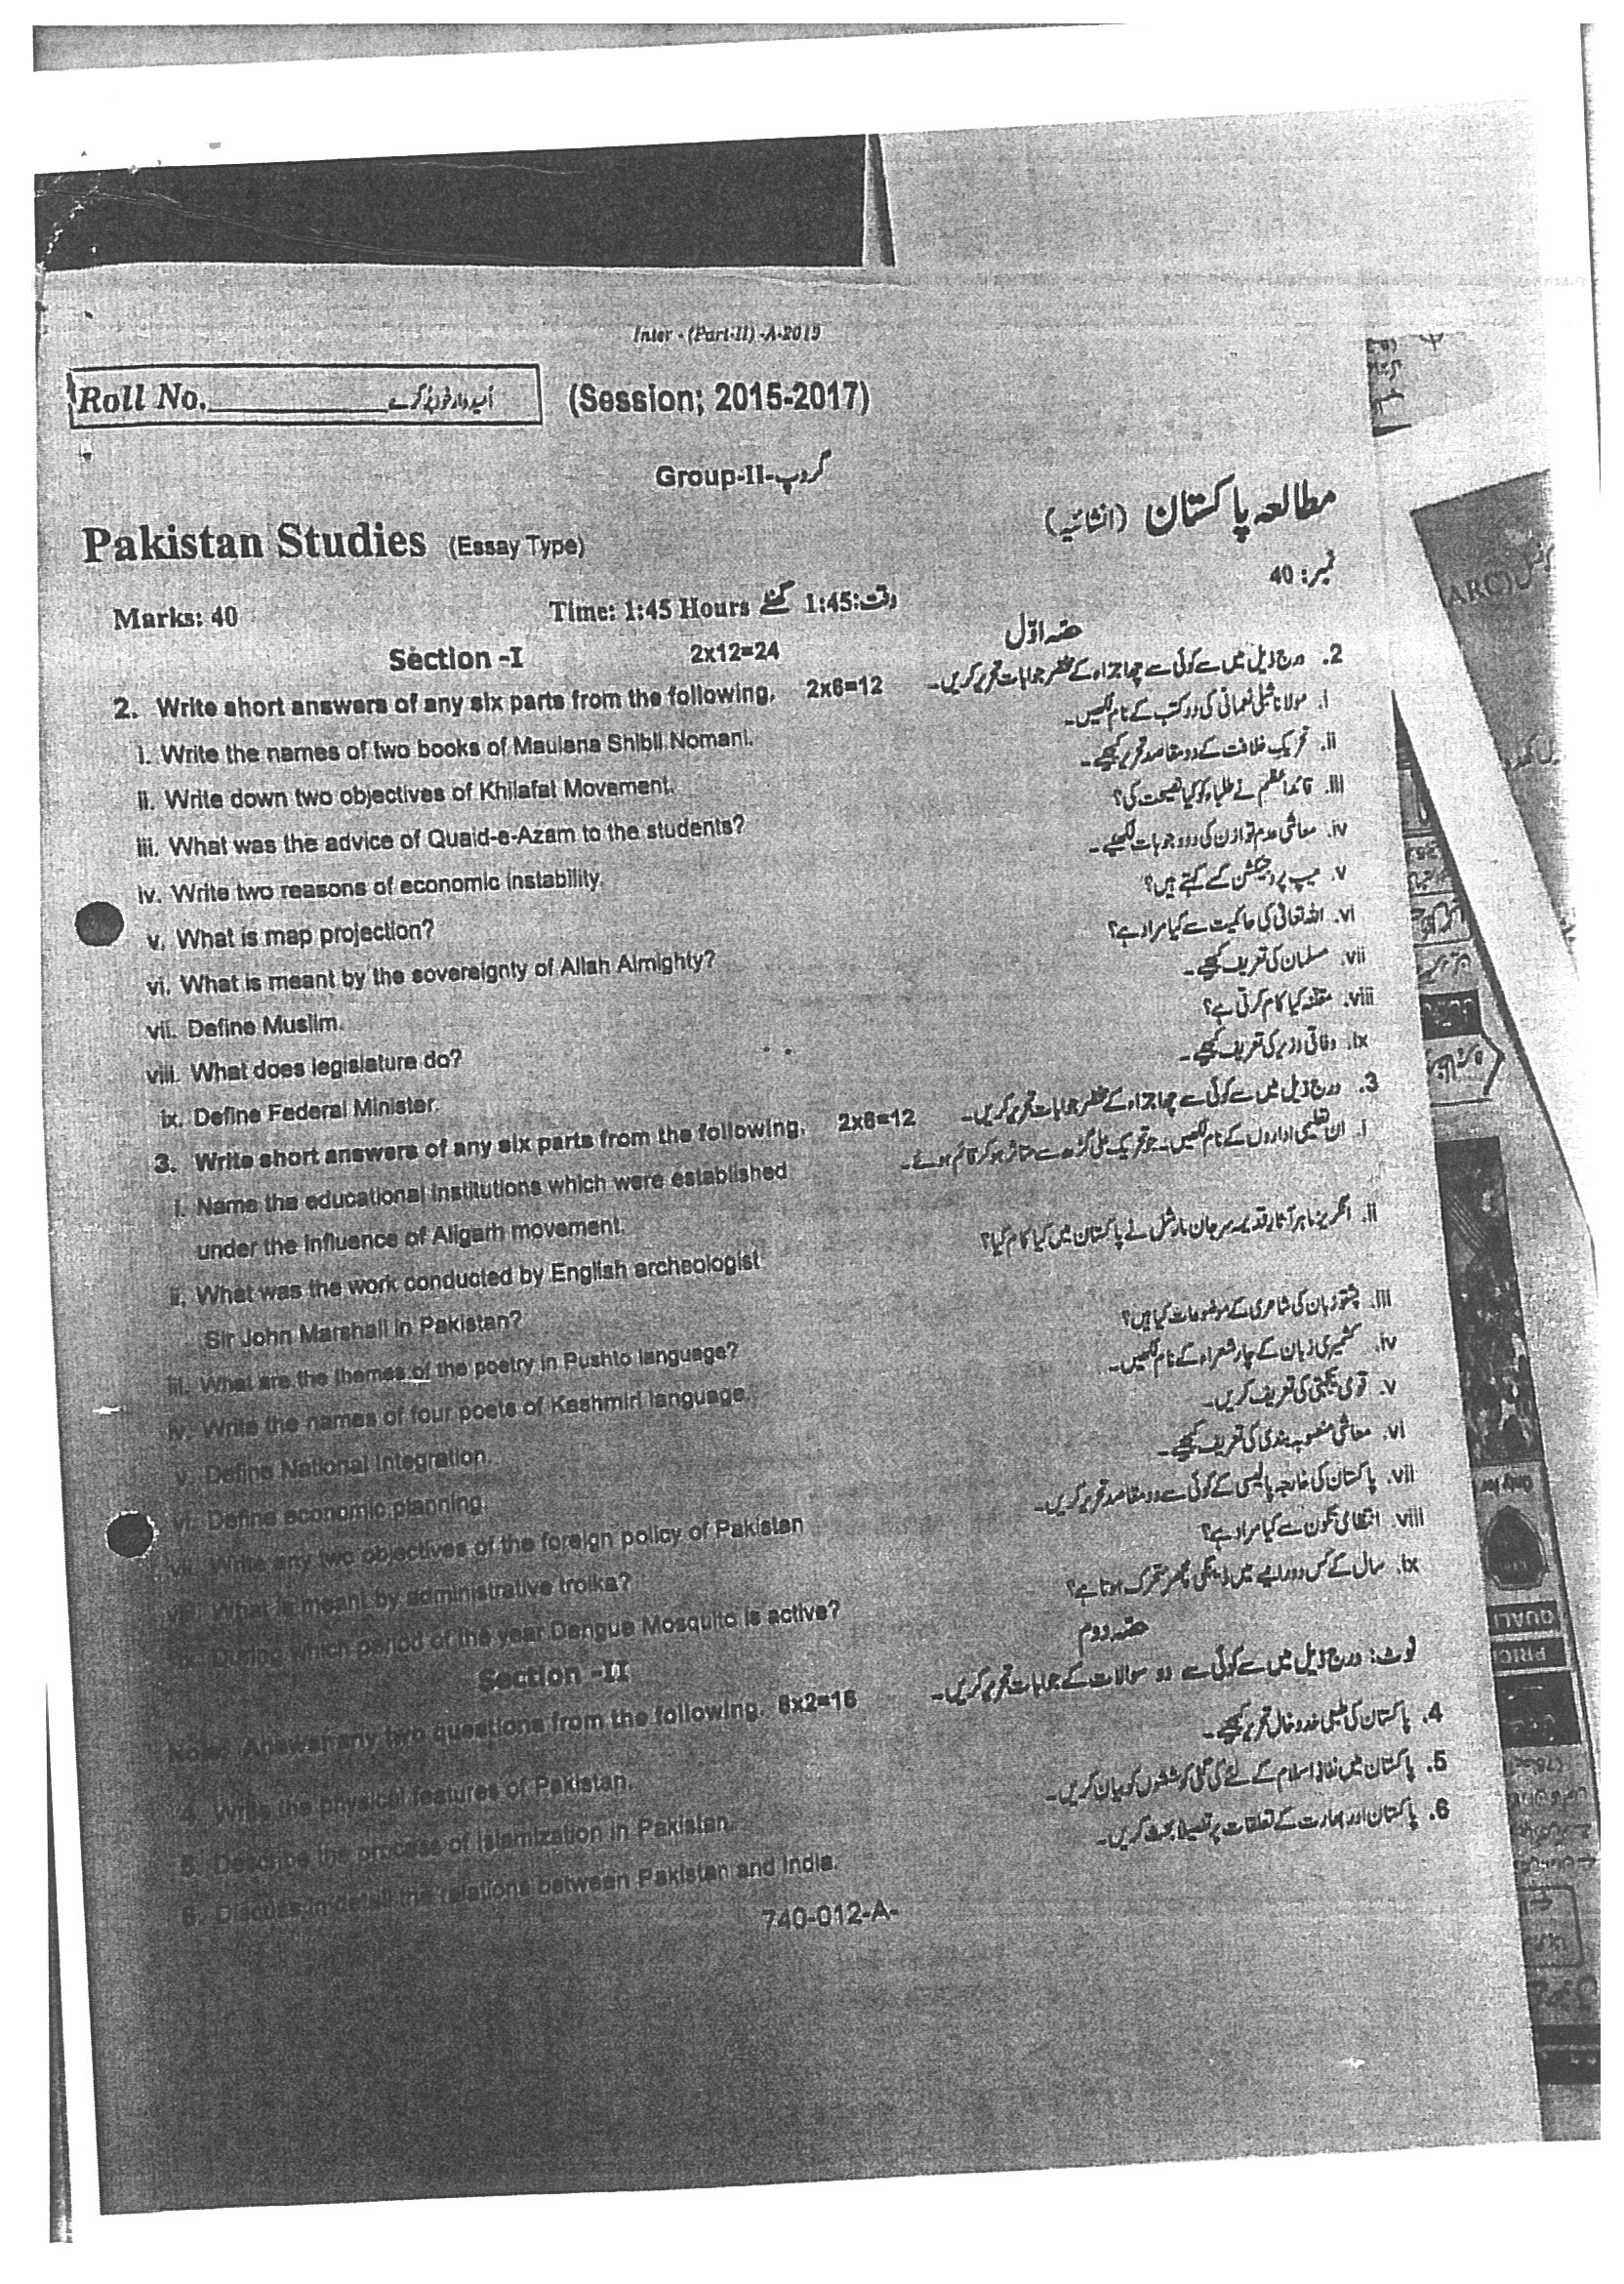 Inter - (Part-II) -A-2019
Roll No. اُمیدوار خود پُر کرے
(Session; 2015-2017)
Group-II-گروپ
Pakistan Studies (Essay Type) مطالعہ پاکستان (انشائیہ)
Marks: 40 Time: 1:45 Hours وقت:1:45 گھنٹے نمبر: 40
Section -I 2x12=24 حصہ اوّل
2. Write short answers of any six parts from the following. 2x6=12 2. درج ذیل میں سے کوئی سے چھ اجزاء کے مختصر جوابات تحریر کریں۔
i. Write the names of two books of Maulana Shibli Nomani. i. مولانا شبلی نعمانی کی دو کتب کے نام لکھیں۔
ii. Write down two objectives of Khilafat Movement. ii. تحریک خلافت کے دو مقاصد تحریر کیجیے۔
iii. What was the advice of Quaid-e-Azam to the students? iii. قائداعظم نے طلباء کو کیا نصیحت کی؟
iv. Write two reasons of economic instability. iv. معاشی عدم توازن کی دو وجوہات لکھیے۔
v. What is map projection? v. میپ پروجیکشن کسے کہتے ہیں؟
vi. What is meant by the sovereignty of Allah Almighty? vi. اللہ تعالیٰ کی حاکمیت سے کیا مراد ہے؟
vii. Define Muslim. vii. مسلمان کی تعریف کیجیے۔
viii. What does legislature do? viii. مقننہ کیا کام کرتی ہے؟
ix. Define Federal Minister. ix. وفاقی وزیر کی تعریف کیجیے۔
3. Write short answers of any six parts from the following. 2x6=12 3. درج ذیل میں سے کوئی سے چھ اجزاء کے مختصر جوابات تحریر کریں۔
i. Name the educational institutions which were established i. ان تعلیمی اداروں کے نام لکھیں۔ جو تحریک علی گڑھ سے متاثر ہو کر قائم ہوئے۔
under the influence of Aligarh movement.
ii. What was the work conducted by English archeologist ii. انگریز ماہر آثار قدیمہ سر جان مارشل نے پاکستان میں کیا کام کیا؟
Sir John Marshall in Pakistan?
iii. What are the themes of the poetry in Pushto language? iii. پشتو زبان کی شاعری کے موضوعات کیا ہیں؟
iv. Write the names of four poets of Kashmiri language. iv. کشمیری زبان کے چار شعراء کے نام لکھیں۔
v. Define National Integration. v. قومی یکجہتی کی تعریف کریں۔
vi. Define economic planning. vi. معاشی منصوبہ بندی کی تعریف کیجیے۔
vii. Write any two objectives of the foreign policy of Pakistan vii. پاکستان کی خارجہ پالیسی کے کوئی سے دو مقاصد تحریر کریں۔
viii. What is meant by administrative troika? viii. انتظامی تکون سے کیا مراد ہے؟
ix. During which period of the year Dengue Mosquito is active? ix. سال کے کس دورانیے میں ڈینگی مچھر متحرک ہوتا ہے؟
Section -II حصہ دوم
Note: Answer any two questions from the following. 8x2=16 نوٹ: درج ذیل میں سے کوئی سے دو سوالات کے جوابات تحریر کریں۔
4. Write the physical features of Pakistan. 4. پاکستان کی طبعی خدوخال تحریر کیجیے۔
5. Describe the process of Islamization in Pakistan. 5. پاکستان میں نفاذ اسلام کے لئے کی گئی کوششوں کو بیان کریں۔
6. Discuss in detail the relations between Pakistan and India. 6. پاکستان اور بھارت کے تعلقات پر تفصیلاً بحث کریں۔
740-012-A-
(ARC)
Only for
QUALI
PRICI